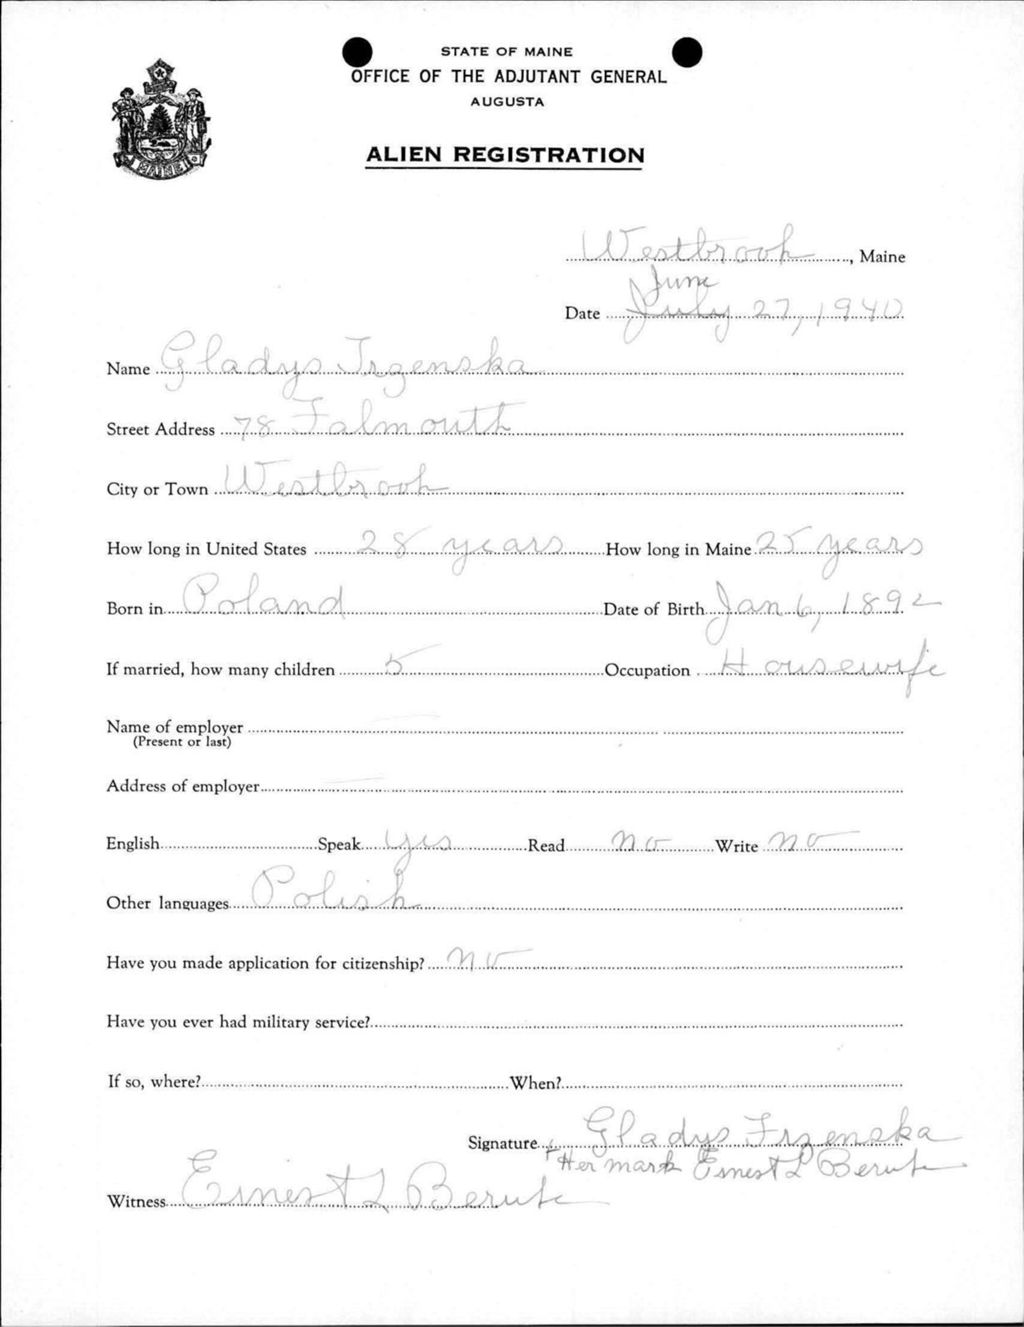 STATE OF MAINE
OFFICE OF THE ADJUTANT GENERAL
AUGUSTA
ALIEN REGISTRATION
MAINE
Westbrook, Maine
June
Date July 27, 1940
Name Gladys Trzenska
Street Address 78 Falmouth
City or Town Westbrook
How long in United States 28 years How long in Maine 25 years
Born in Poland Date of Birth Jan 6, 1892
If married, how many children 5 Occupation Housewife
Name of employer
(Present or last)
Address of employer
English Speak yes Read no Write no
Other languages Polish
Have you made application for citizenship? no
Have you ever had military service?
If so, where? When?
Signature Gladys Trzenska
+ Her mark Ernest L Berube
Witness Ernest L Berube